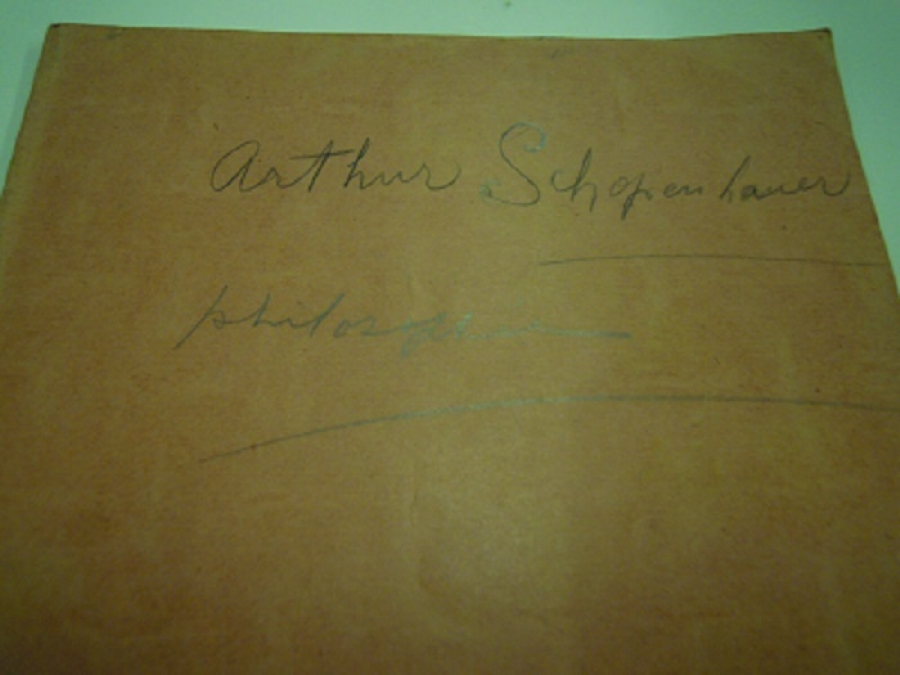 Arthur Schopenhauer
philosophie